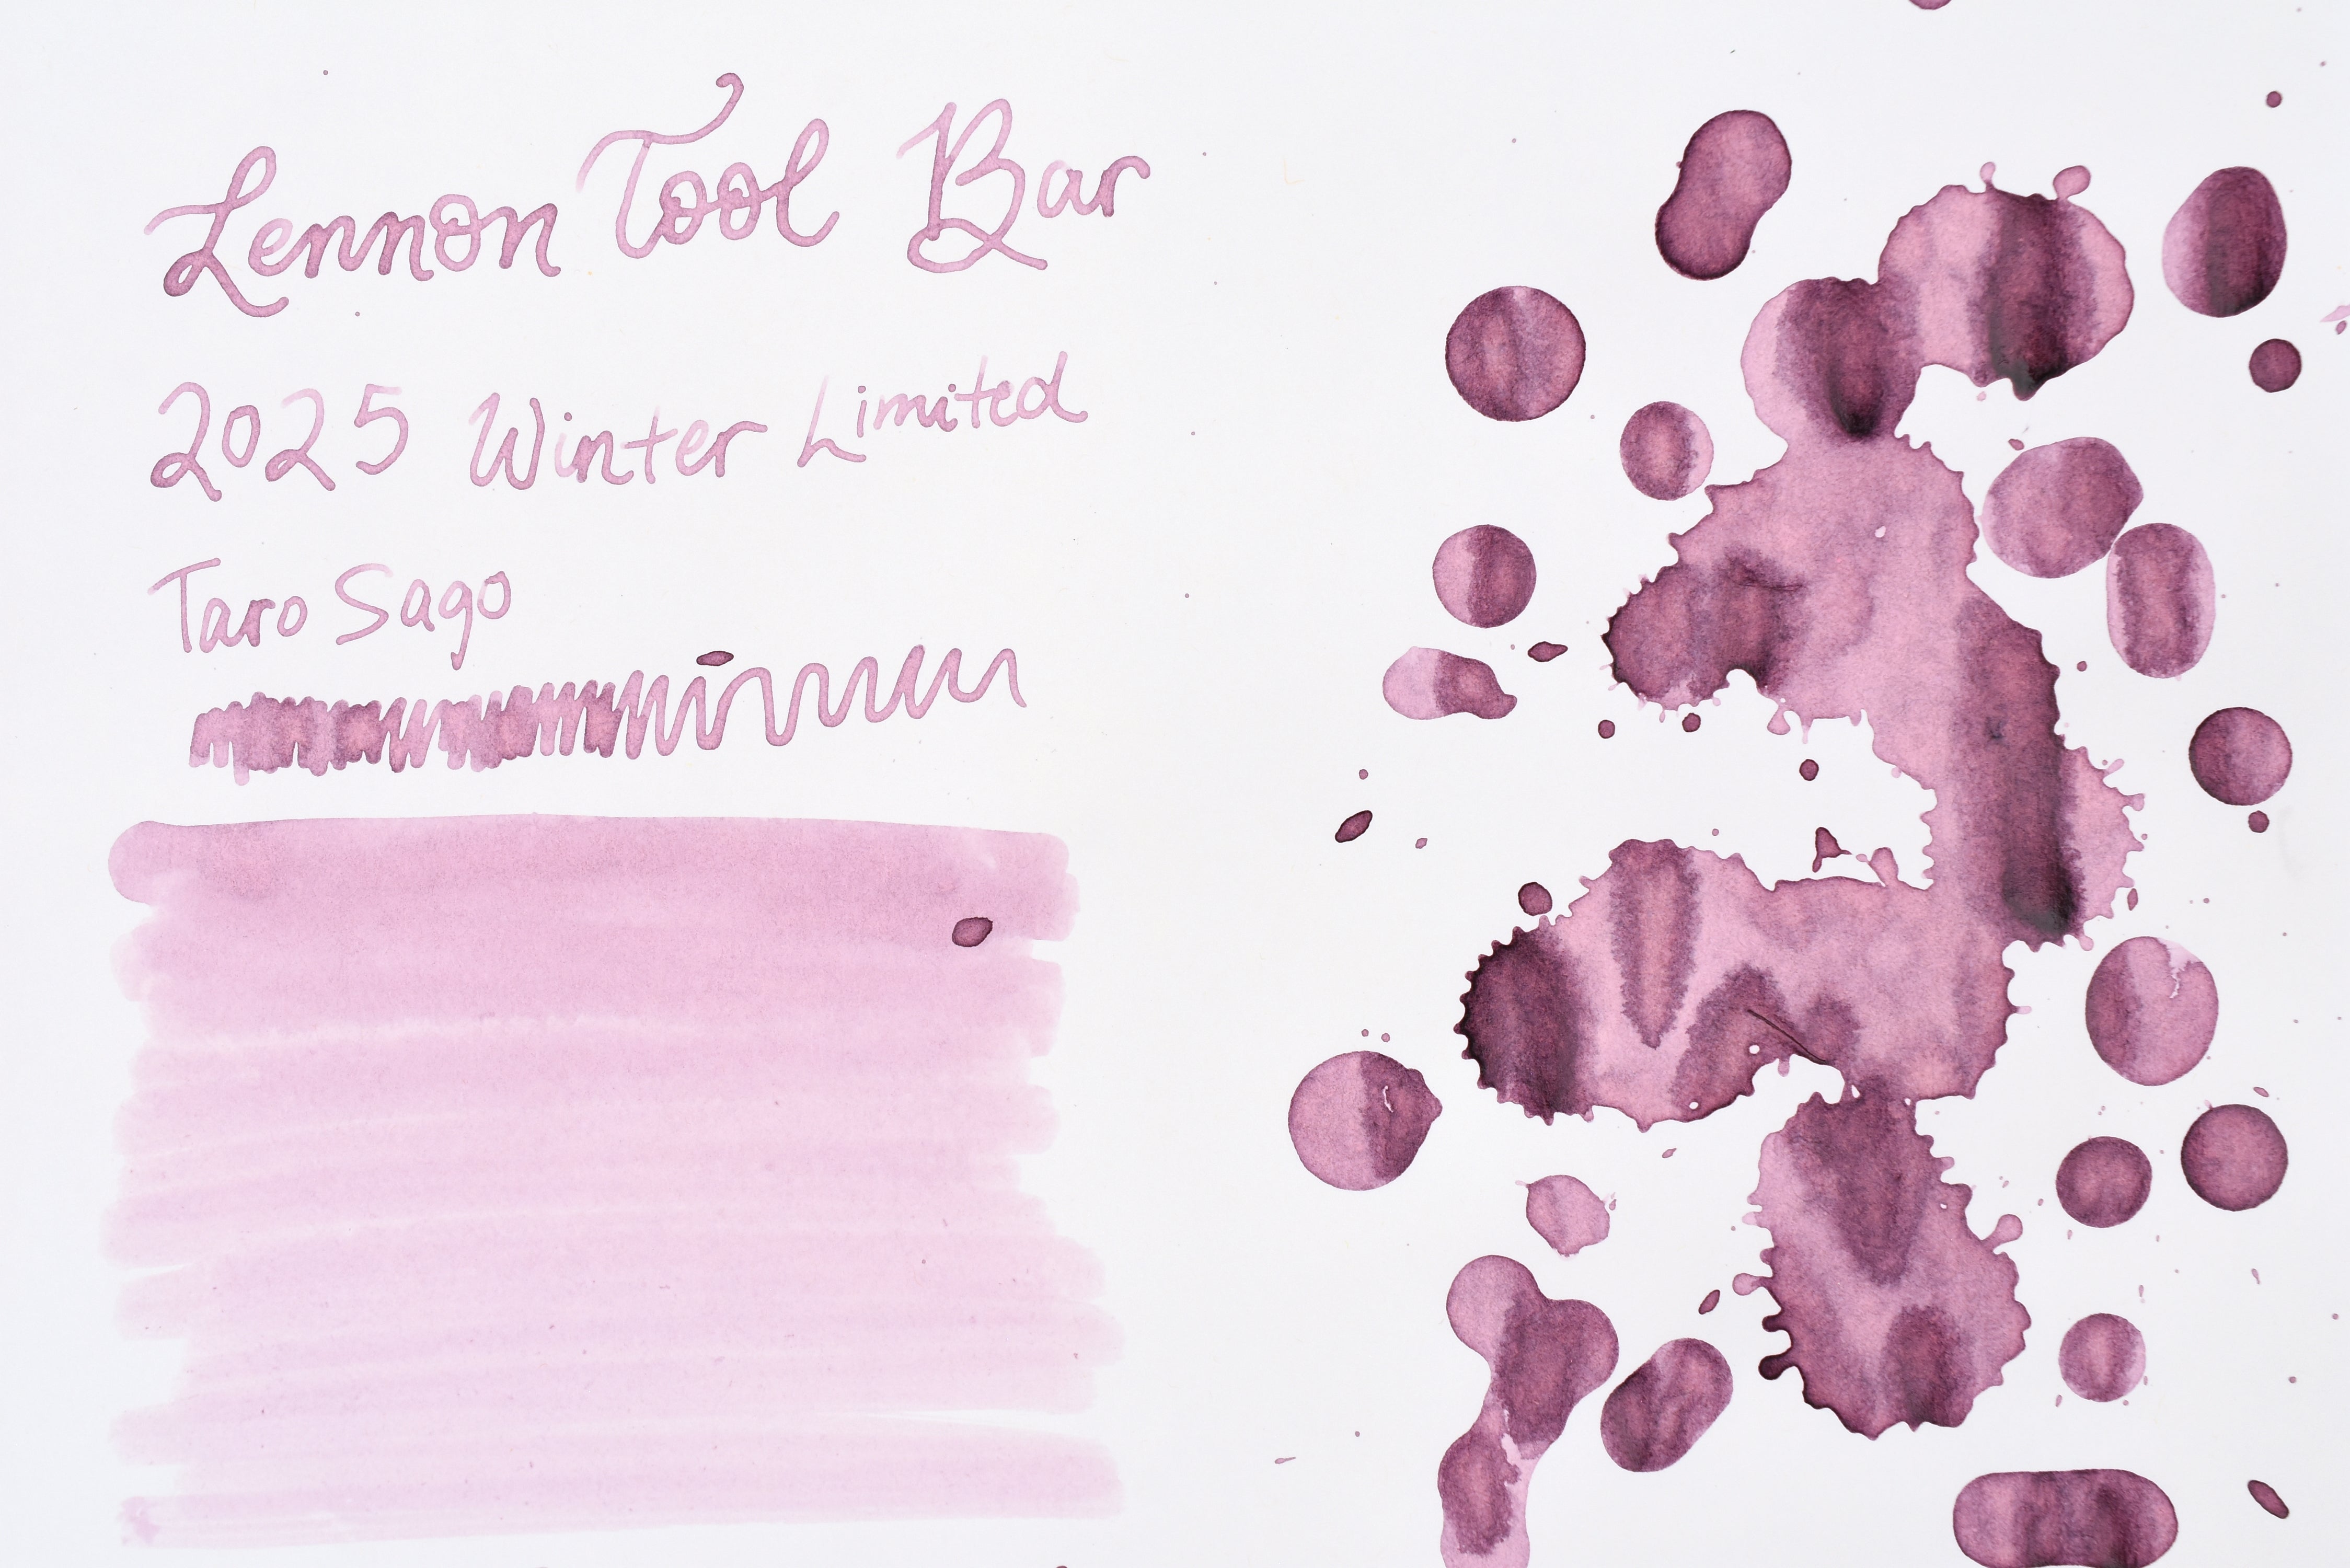 Lennon Tool Bar
2025 Winter Limited
Taro Sago